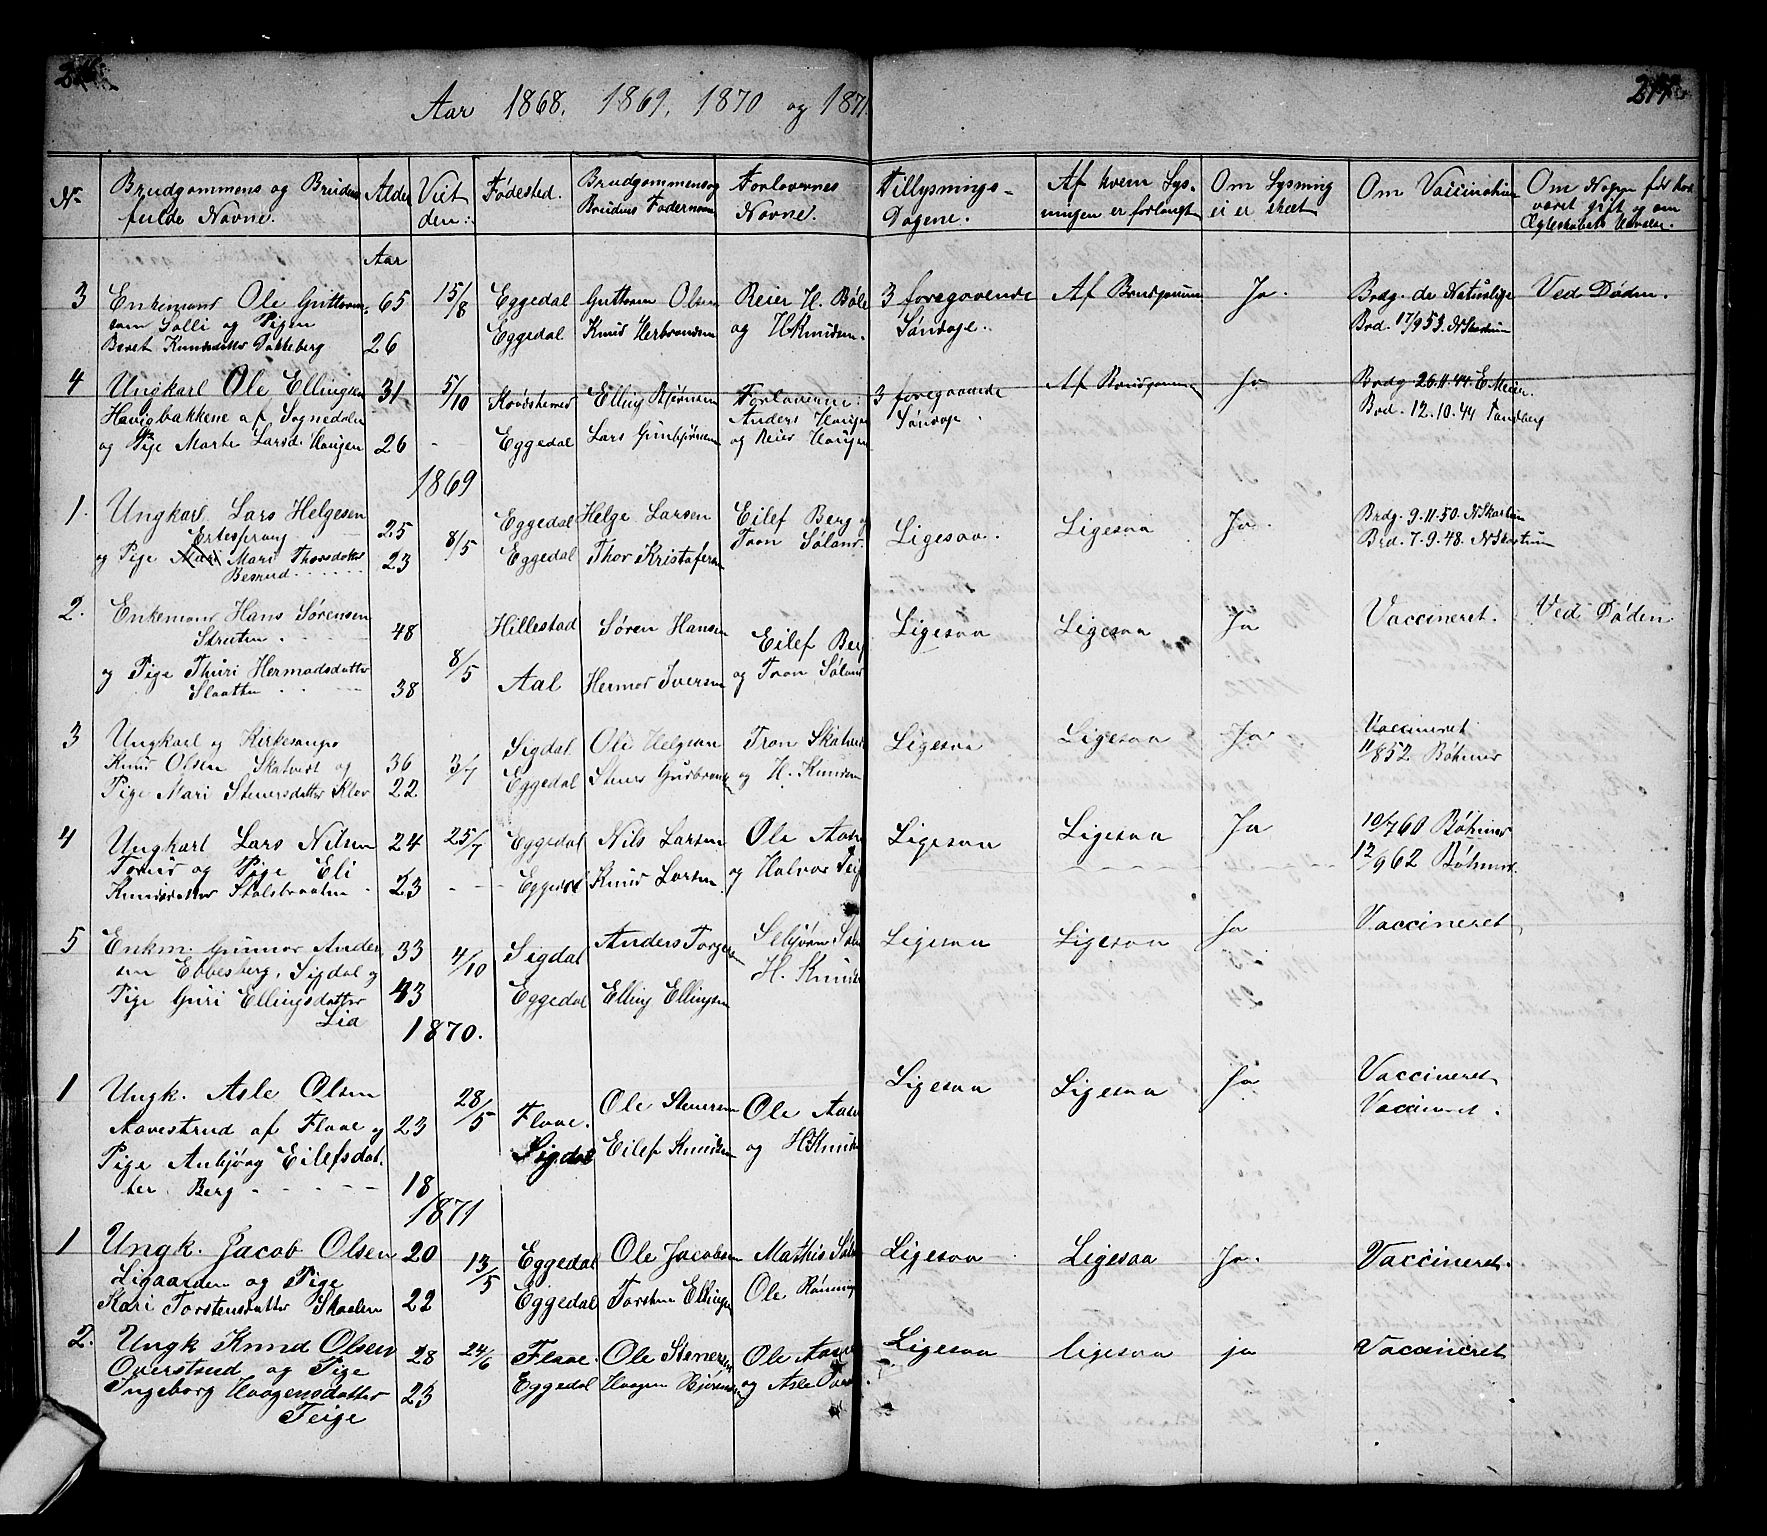 216.
217.
Aar 1868. 1869. 1870 og 1871.
No Brudgommens og Brudens fulde Navne. Alder Viet den: Fødested. Brudgommens og Brudens Fadernavn Forlovernes Navne. Tillysnings-Dagene. Af hvem Lysningen er forlangt Om Lysning ei er skeet Om Vaccination Om Nogen før har været gift og om Ægteskabets
Aar
3 Enkemand Ole Guttorm- 65 15/8 Eggedal Guttorm Olsen Reier H. Bøle 3 foregaaende Af Brudgommen Ja. Brdg. de Naturlige Ved Døden.
sen Golli og Pigen Søndage. Brd. 17/9 53. N Skartum
Beret Knudsdatter Dokkeberg 26 Eggedal Knud Herbrandsen og H. Knudsen.
4 Ungkarl Ole Ellingsen 31 5/10 Krødsherred Elling Bjørnsen Forloverne: 3 foregaaende Af Brudgommen Ja Brdg. 26.11.44. E. Meier
Havigbakkene af Sognedalen Anders Haugen Søndage. Brd. 12.10.44 Tandberg
og Pige Marte Larsd. Haugen 26 - - Eggedal Lars Gunbjørnsen og Reier Haugen
1869
1. Ungkarl Lars Helgesen 25 8/5 Eggedal Helge Larsen Eilef Berg og Ligesaa. Ligesaa Ja. Brdg. 9.11.50. N Skartum
Ertesprang Tron Søland. Brd. 7.9.48. N Skartum
og Pige Mari Thorsdatter 23 Eggedal Thor Kristofersen
Besrud
2. Enkemand Hans Sørensen 48 Hillestad Søren Hansen Eilef Berg Ligesaa Ligesaa Ja Vaccineret. Ved Døden
Struten.
og Pige Thuri Hermodsdatter 38 8/5 Aal Hermod Iversen og Tron Søland
Slaatten
3 Ungkarl og Kirkesanger 36 3/7 Sigdal Ole Helgsen Tron Skatvedt Ligesaa Ligesaa Ja. Vaccineret
Knud Olsen Skatvedt og 11/8 52 Bøhmer
Pige Mari Stenersdatter Klev 22 Eggedal Stener Gudbrands og H. Knudsen
4 Ungkarl Lars Nilsen 24 25/7 Eggedal Nils Larsen Ole Aasen Ligesaa Ligesaa Ja 10/7 60 Bøhmer
og Pige Eli 12/9 62 Bøhmer.
Knudsdatter Stolsbraaten 23 - - Eggedal Knud Larsen og Halvor Teig
5 Enkm. Gunnar Ander- 33 4/10 Sigdal Anders Torgersen Ligesaa Ligesaa Ja Vaccineret
sen Ebbesberg, Sigdal og H. Knudsen
Pige Guri Ellingsdatter 43 Eggedal Elling Ellingsen
Lia
1870.
1 Ungk. Asle Olsen 28/5 Ole Stenersen Ole Aasen Ligesaa Ligesaa Ja Vaccineret
Aavestrud af Flaae og 23 Flaae. Vaccineret.
Pige Anbjørg Eilefsdat- Sigdal Eilef Knudsen og H. Knudsen
ter Berg 18
1871
1 Ungk. Jacob Olsen 20 13/5 Eggedal Ole Jacobsen Mathis Ligesaa Ligesaa Ja. Vaccineret.
Ligaarden og Pige
Kari Torstensdatter Skaalen 22 Eggedal Torsten Ellingsen Ole Rønning
2. Ungk Knud Olsen 28 24/6 Flaae. Ole Stenersen Ole Aasen Ligesaa ligesaa ja Vaccineret
Overstrud og Pige
Ingeborg Haagensdatter 23 Eggedal Haagen Bjørnsen og Asle
Teige